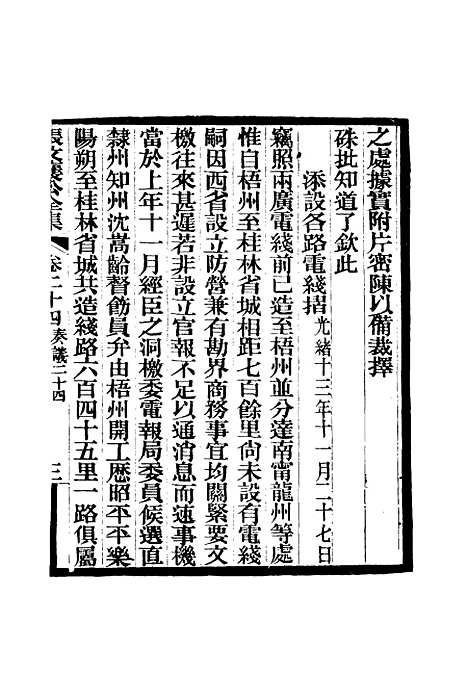 之處據實附片密陳以備裁擇
硃批知道了欽此
添設各路電綫摺光緒十三年十一月二十七日
竊照兩廣電綫前已造至梧州並分達南甯龍州等處
惟自梧州至桂林省城相距七百餘里尚未設有電綫
嗣因西省設立防營兼有勘界商務事宜均關緊要文
檄往來甚遲若非設立官報不足以通消息而速事機
當於上年十一月經臣之洞檄委電報局委員候選直
隸州知州沈嵩齡督飭員弁由梧州開工歷昭平平樂
陽朔至桂林省城共造綫路六百四十五里一路俱屬
張文襄公全集 卷二十四奏議二十四 三